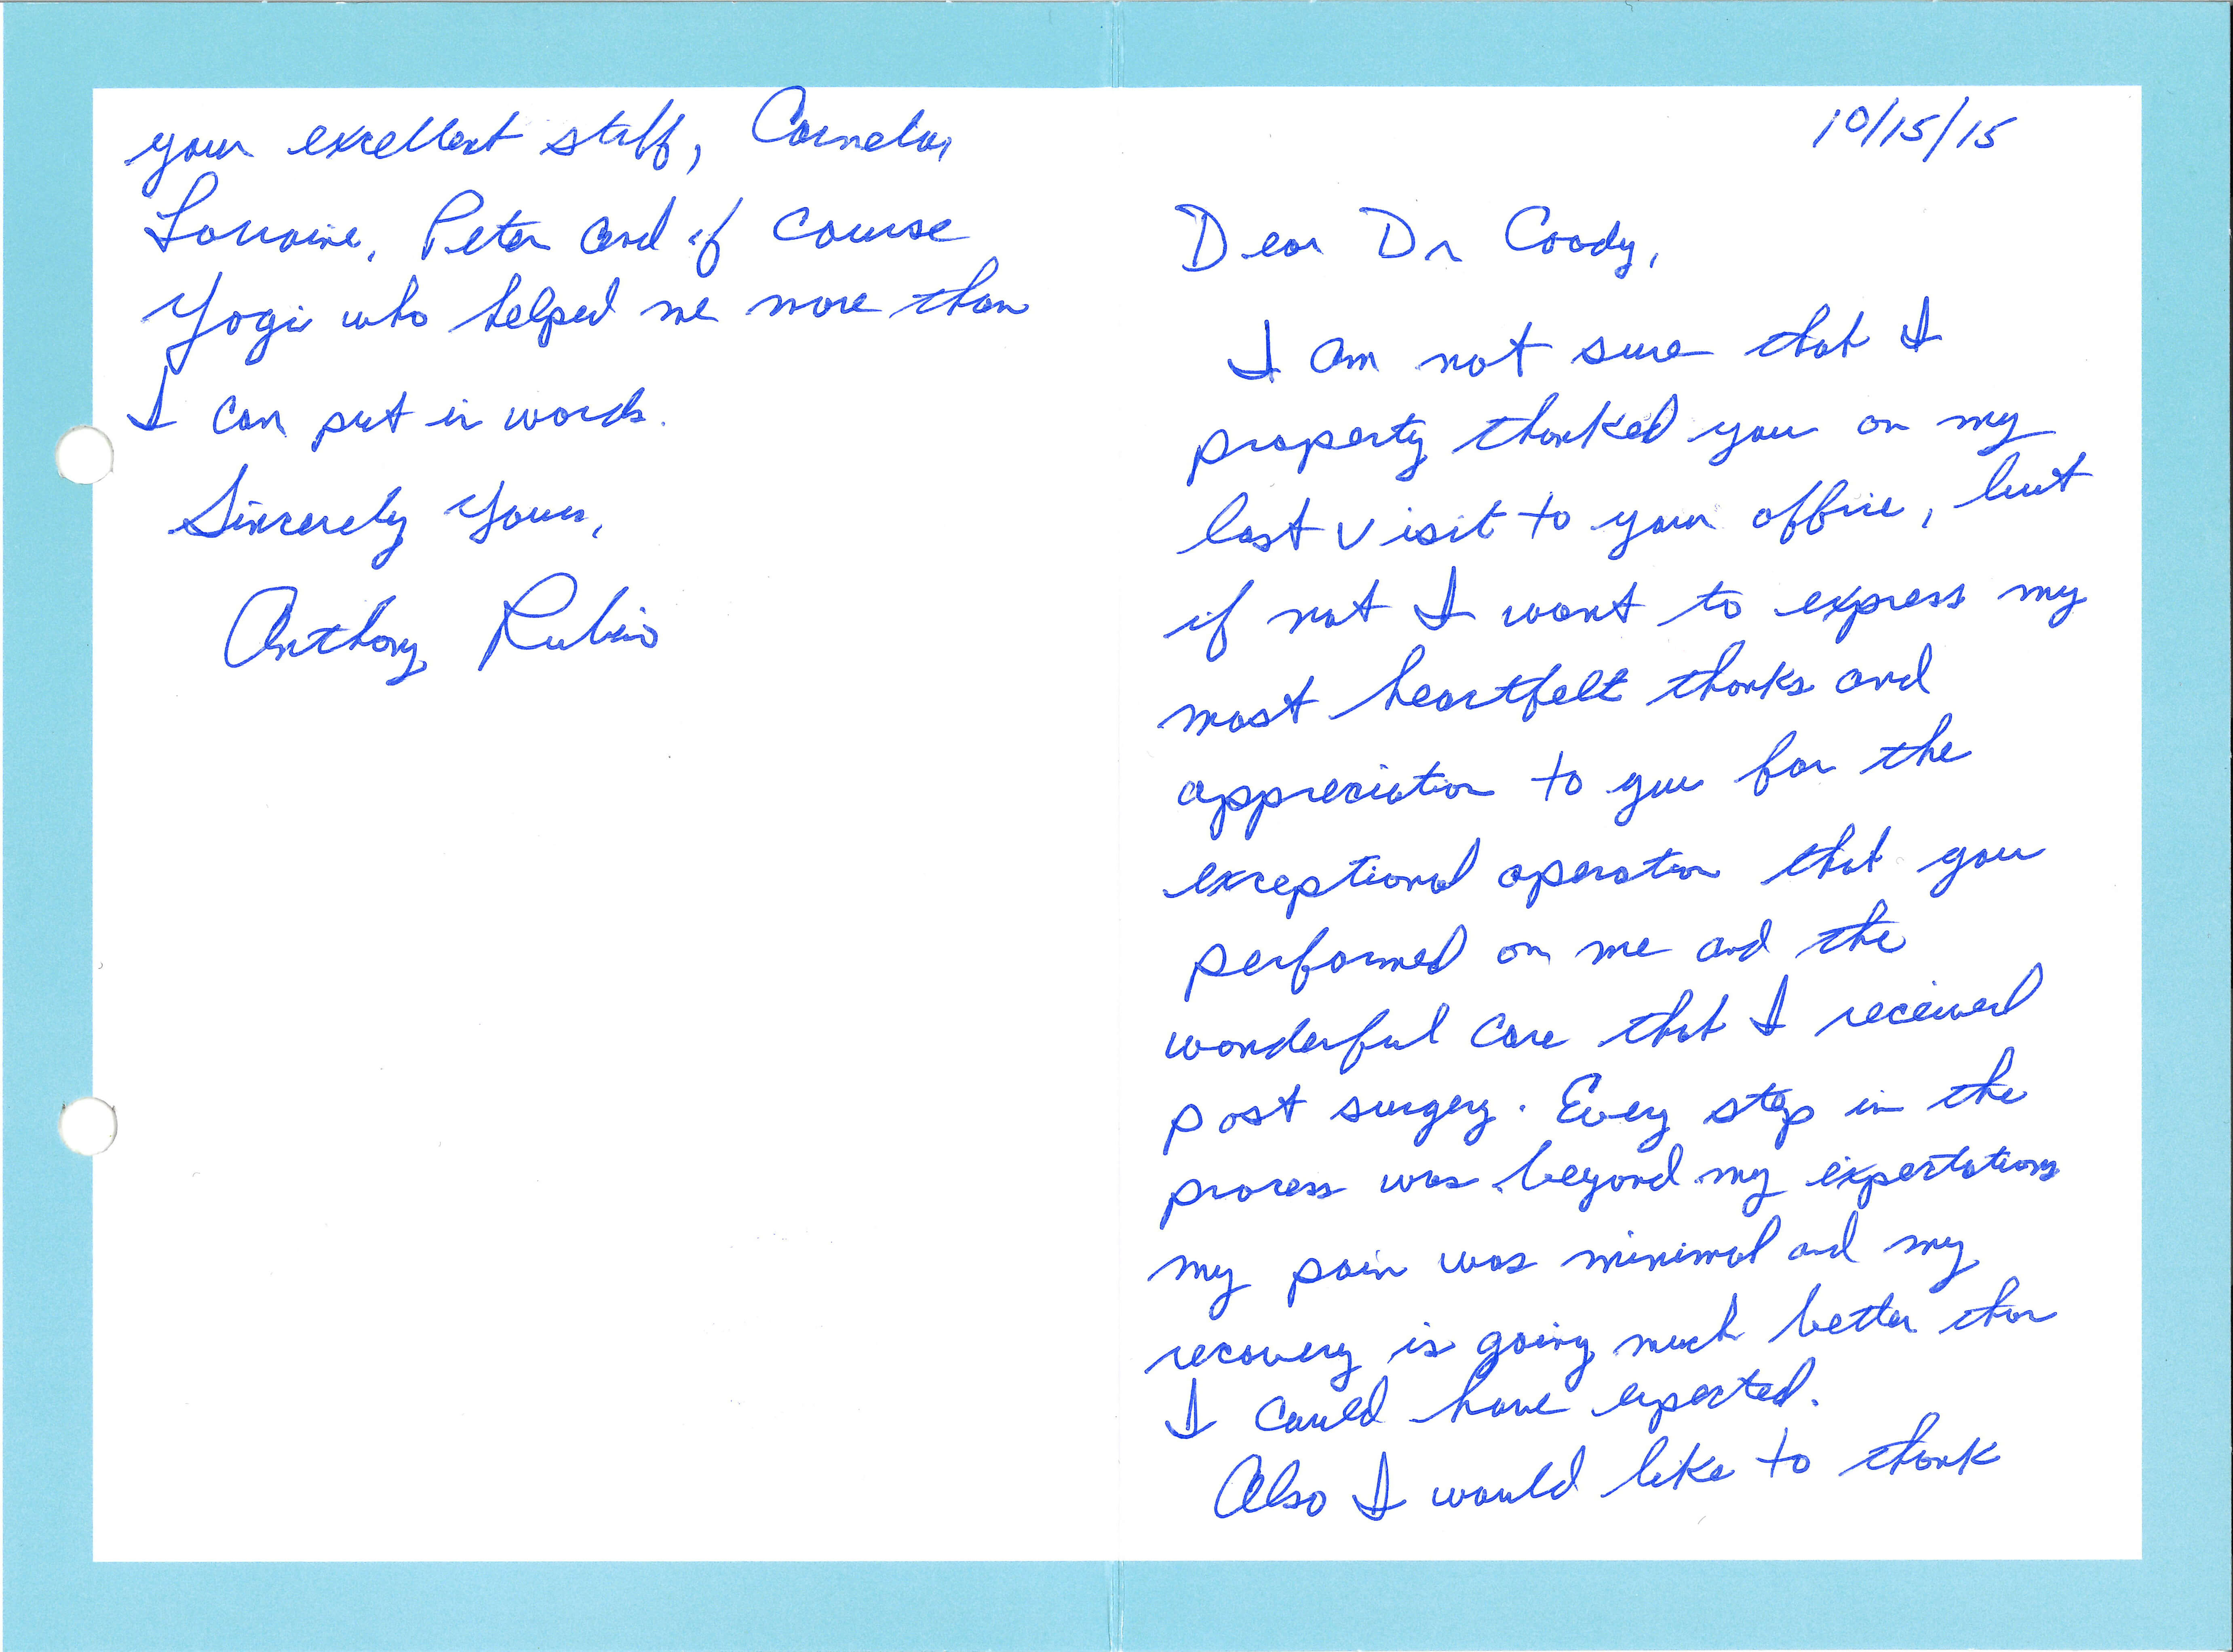 10/15/15
Dear Dr Coody,
I am not sure that I
property thanked you on my
last visit to your office, but
if not I want to express my
most heartfelt thanks and
appreciation to you for the
exceptional operation that you
performed on me and the
wonderful care that I received
post surgery. Every step in the
process was beyond my expectations
my pain was minimal and my
recovery is going much better than
I could have expected.
Also I would like to thank
your excellent staff,
Lorraine, Peter and of course
Yogi who helped me more than
I can put in words.
Sincerely Yours,
Anthony Rubino